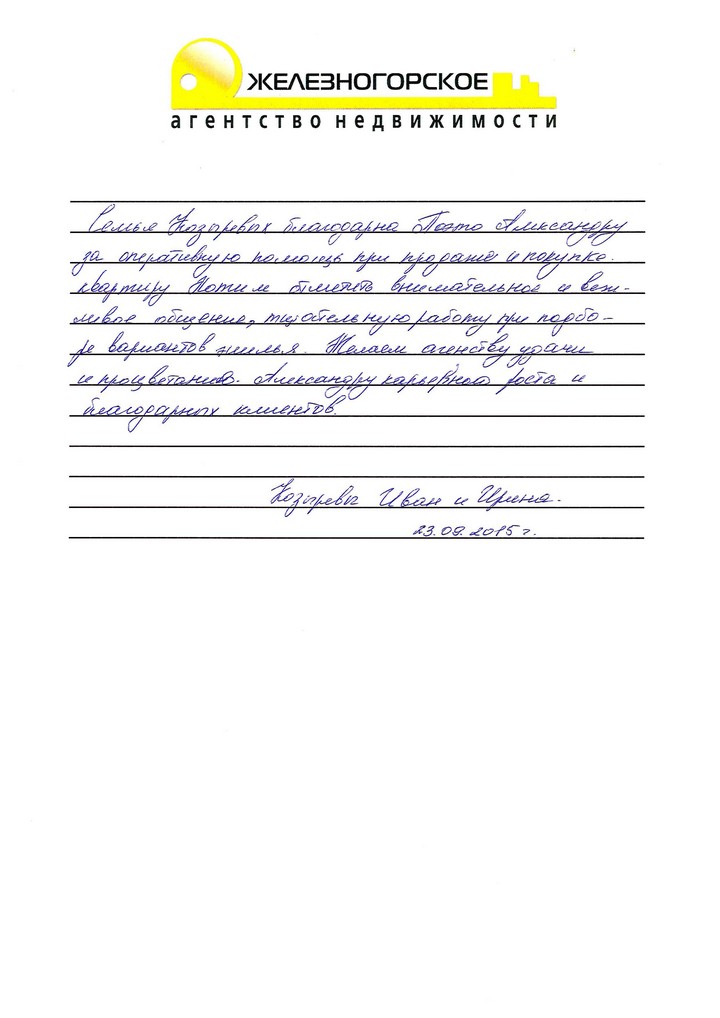 ЖЕЛЕЗНОГОРСКОЕ
агентство недвижимости
Семья Козыревых благодарна Поэто Александру
за оперативную помощь при продаже и покупке.
квартиру Хотим отметить внимательное и веж-
ливое общение, тщательную работу при подбо-
ре вариантов жилья. Желаем агенству удачи
и процветания. Александру карьерного роста и
благодарных клиентов.
Козыревы Иван и Ирина.
23.09.2015 г.